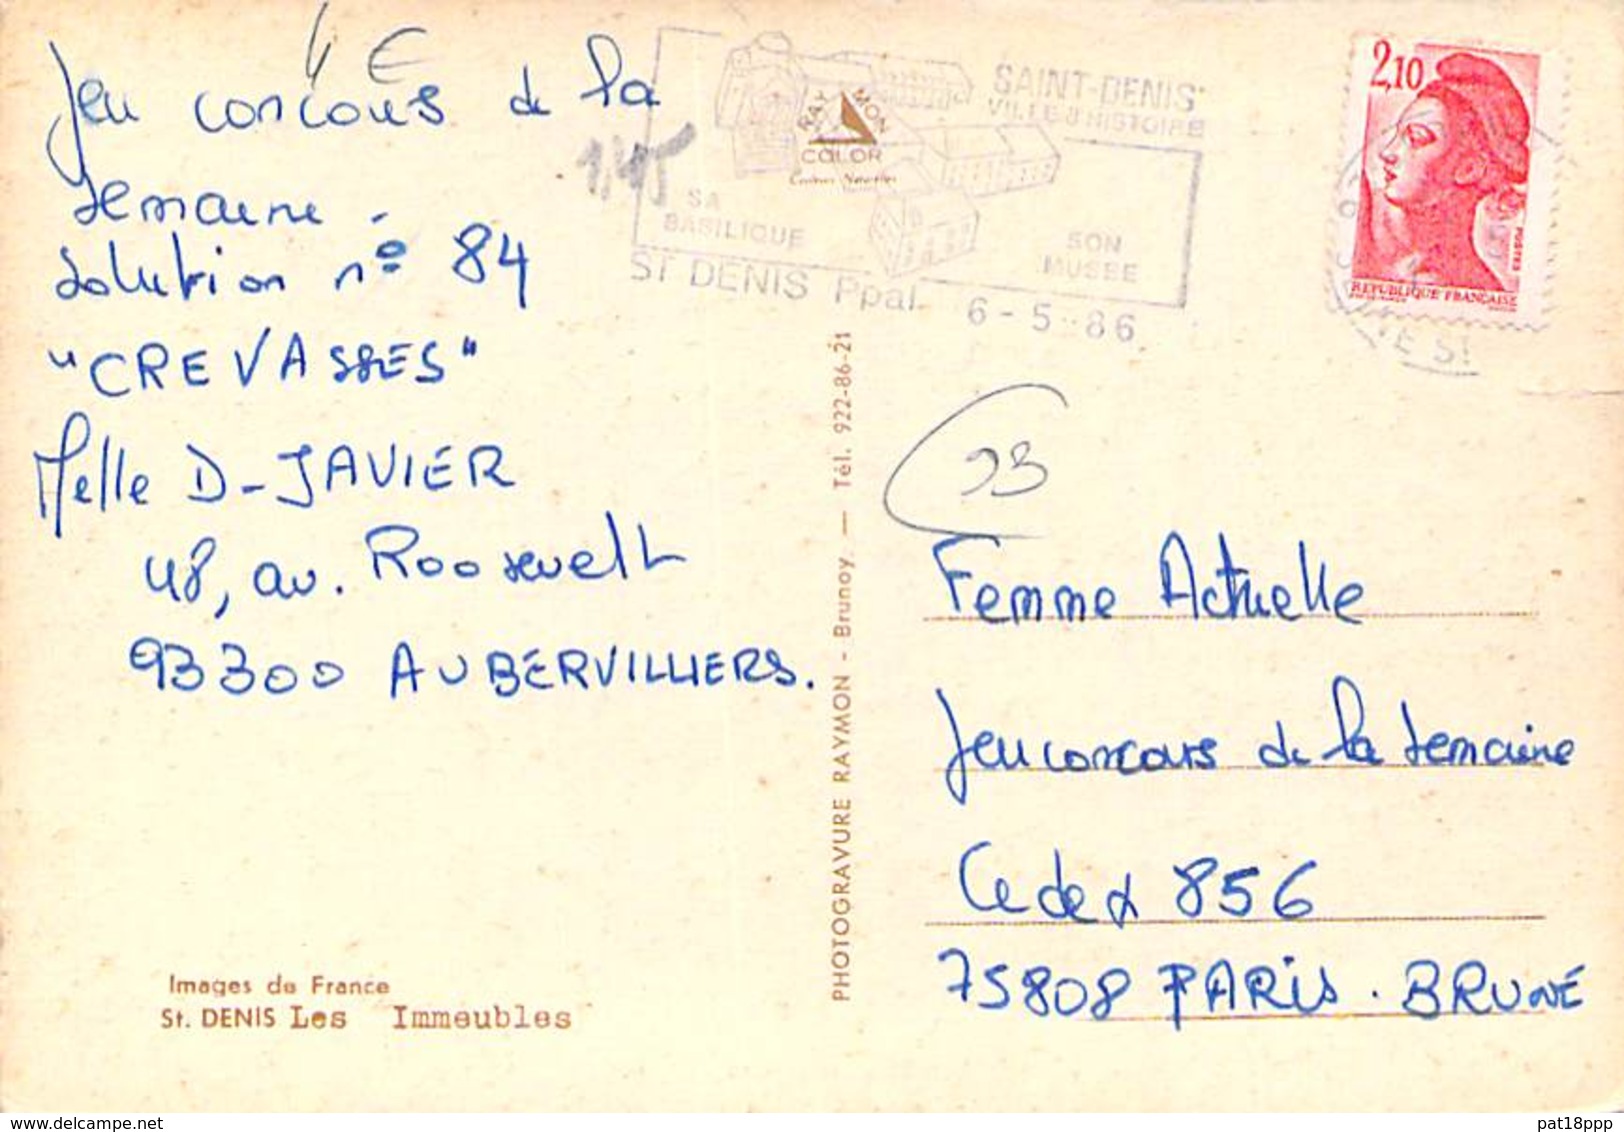 4 €
Jeu concours de la
semaine -
solution nº 84
"CREVASSES"
Melle D-JAVIER
48, av. Roosevelt
93300 AUBERVILLIERS.
1,45
Images de France
St. DENIS Les Immeubles
RAYMON
COLOR
SAINT-DENIS
VILLE D'HISTOIRE
SA
BASILIQUE
SON
MUSEE
ST DENIS Ppal
6-5-86
2,10
POSTES
REPUBLIQUE FRANÇAISE
PHOTOGRAVURE RAYMON - Brunoy. — Tél. 922-86-21
93
Femme Actuelle
Jeu concours de la semaine
Cedex 856
75808 PARIS. BRUNE
pat18ppp